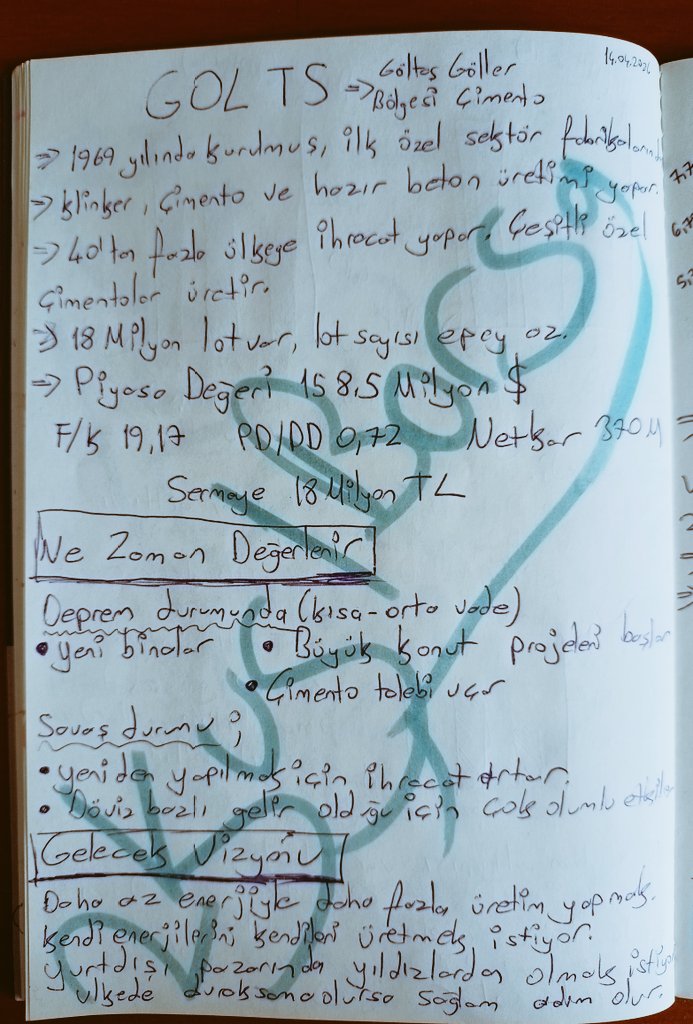 14.04.2026
GOLTS => Göltaş Göller
Bölgesi Çimento
=> 1969 yılında kurulmuş, ilk özel sektör fabrikalarından
=> klinker, Çimento ve hazır beton üretimi yapar.
=> 40'tan fazla ülkeye ihracat yapar. Çeşitli özel
Çimentolar üretir.
=> 18 Milyon lot var, lot sayısı epey az.
=> Piyasa Değeri 158.5 Milyon $
F/k 19,17 PD/DD 0,72 Netkar 370M
Sermaye 18 Milyon TL
Ne Zaman Değerlenir
Deprem durumunda (kısa-orta vade)
• yeni binalar • Büyük konut projeleri başlar
• Çimento talebi uçar
Savaş durumu ;
• yeniden yapılmak için ihracat artar.
• Döviz bazlı gelir olduğu için çok olumlu etkiler
Gelecek Vizyonu
Daha az enerjiyle daha fazla üretim yapmak.
kendi enerjilerini kendileri üretmek istiyor.
yurtdışı pazarında yıldızlardan olmak istiyor
ülkede duraksama olursa sağlam adım olur.